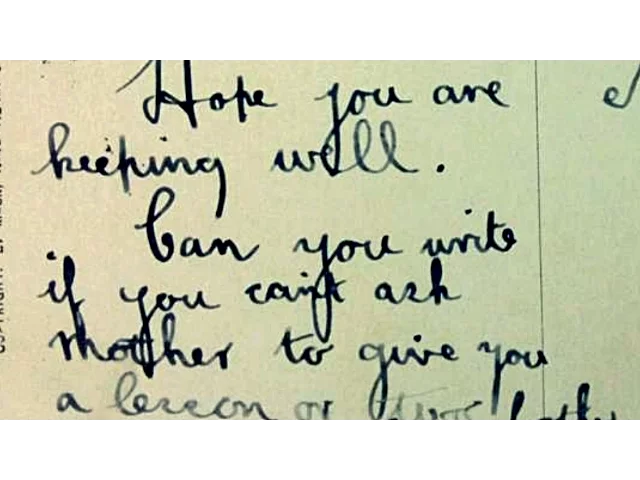 Hope you are
keeping well.
Can you write
if you can't ask
mother to give you
a lesson or two